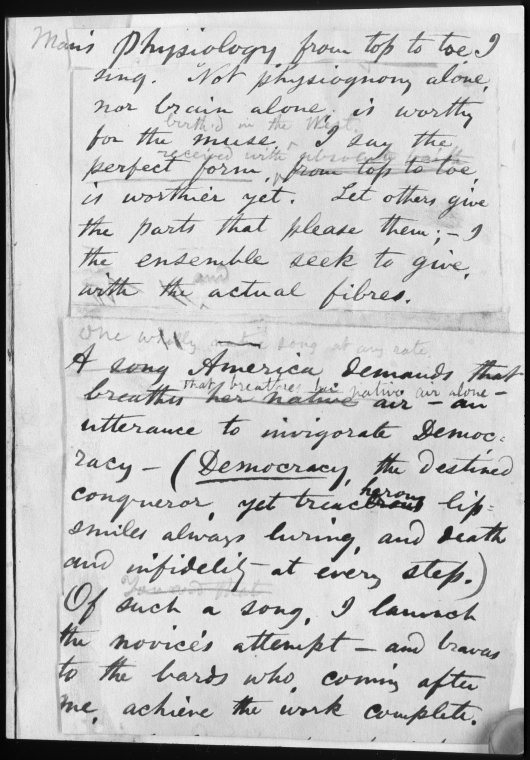 Man's Physiology from top to toe I
sing. Not physiognomy alone,
nor brain alone, is worthy
birth'd in the West,
for the muse, I say the
received with absolute faith
perfect form, from top to toe,
is worthier yet. Let others give
the parts that please them; – I
the ensemble seek to give,
and
with the actual fibres.
One song at any rate,
A song America demands that
that breathes her native air alone –
breathes her native air – an
utterance to invigorate Democ-
racy – (Democracy, the destined
conqueror, yet treacherous lip-
smiles always luring, and death
and infidelity at every step.)
Of such a song, I launch
the novice's attempt – and bravas
to the bards who, coming after
me, achieve the work complete.